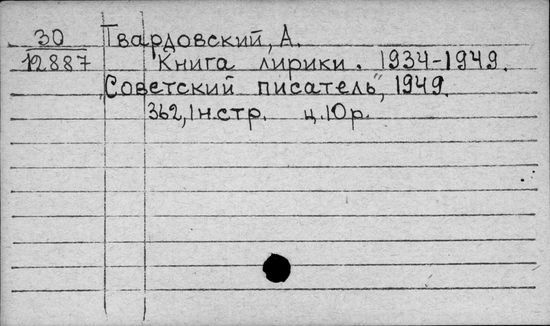 30 Твардовский, А.
12887 Книга лирики. 1934-1949.
„Советский писатель", 1949.
362,1н.стр. ц.10р.